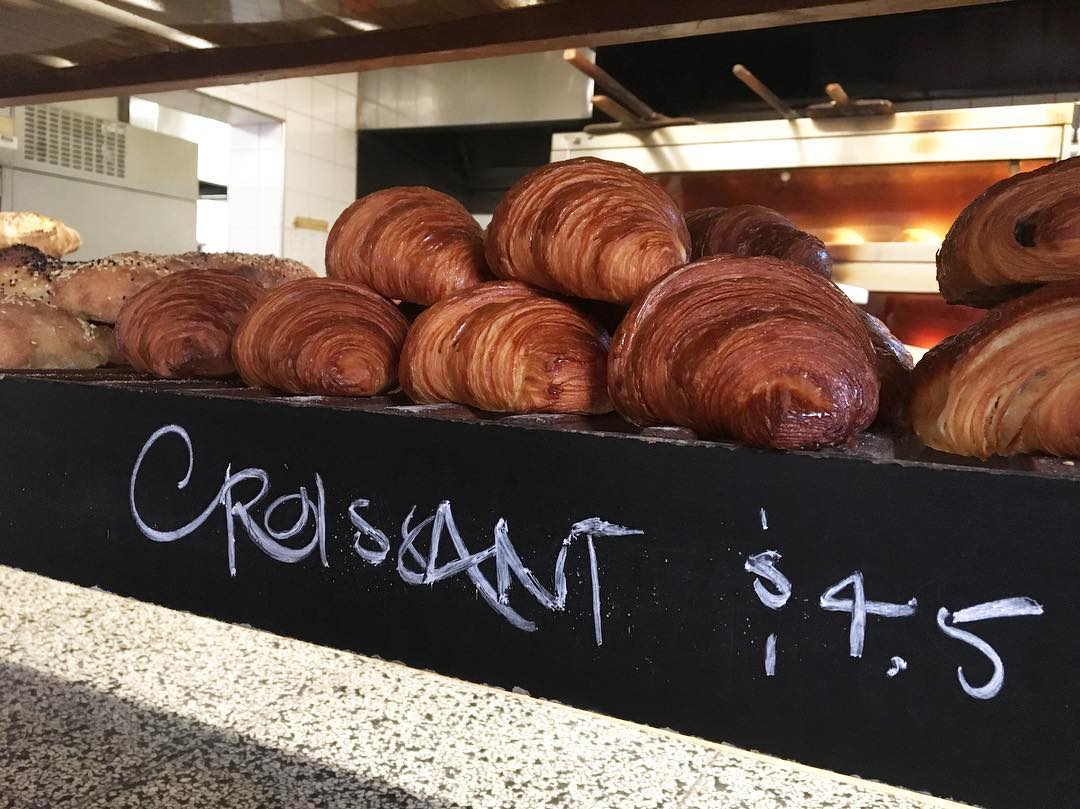 CROISSANT $4.5